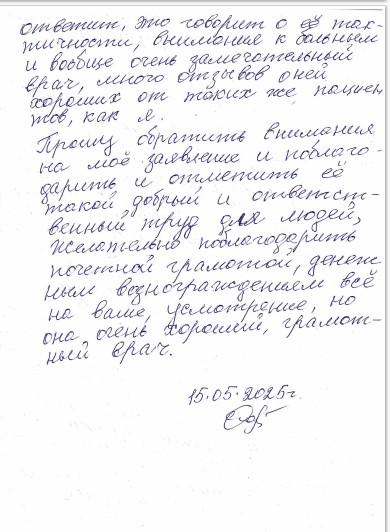 ответит, это говорит о её так-
тичности, внимания к больным
и вообще очень замечательный
врач, много отзывов о ней
хороших от таких же пациен
тов, как я.
Прошу обратить внимания
на моё заявление и поблаго-
дарить и отметить её
такой добрый и ответст-
венный труд для людей,
желательно поблагодарить
почетной грамотой, денеж-
ным вознограждением всё
на ваше, усмотрение, но
она очень хороший, грамот-
ный врач.
15.05.2025г.